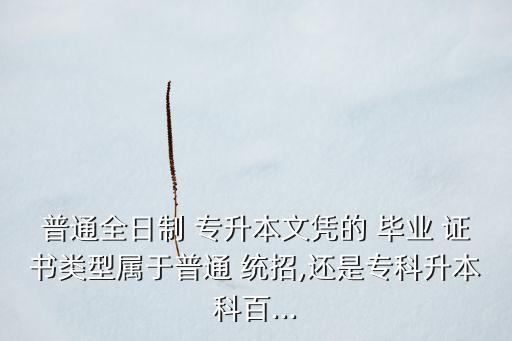 普通全日制 专升本文凭的 毕业 证
书类型属于普通 统招,还是专科升本
科百...